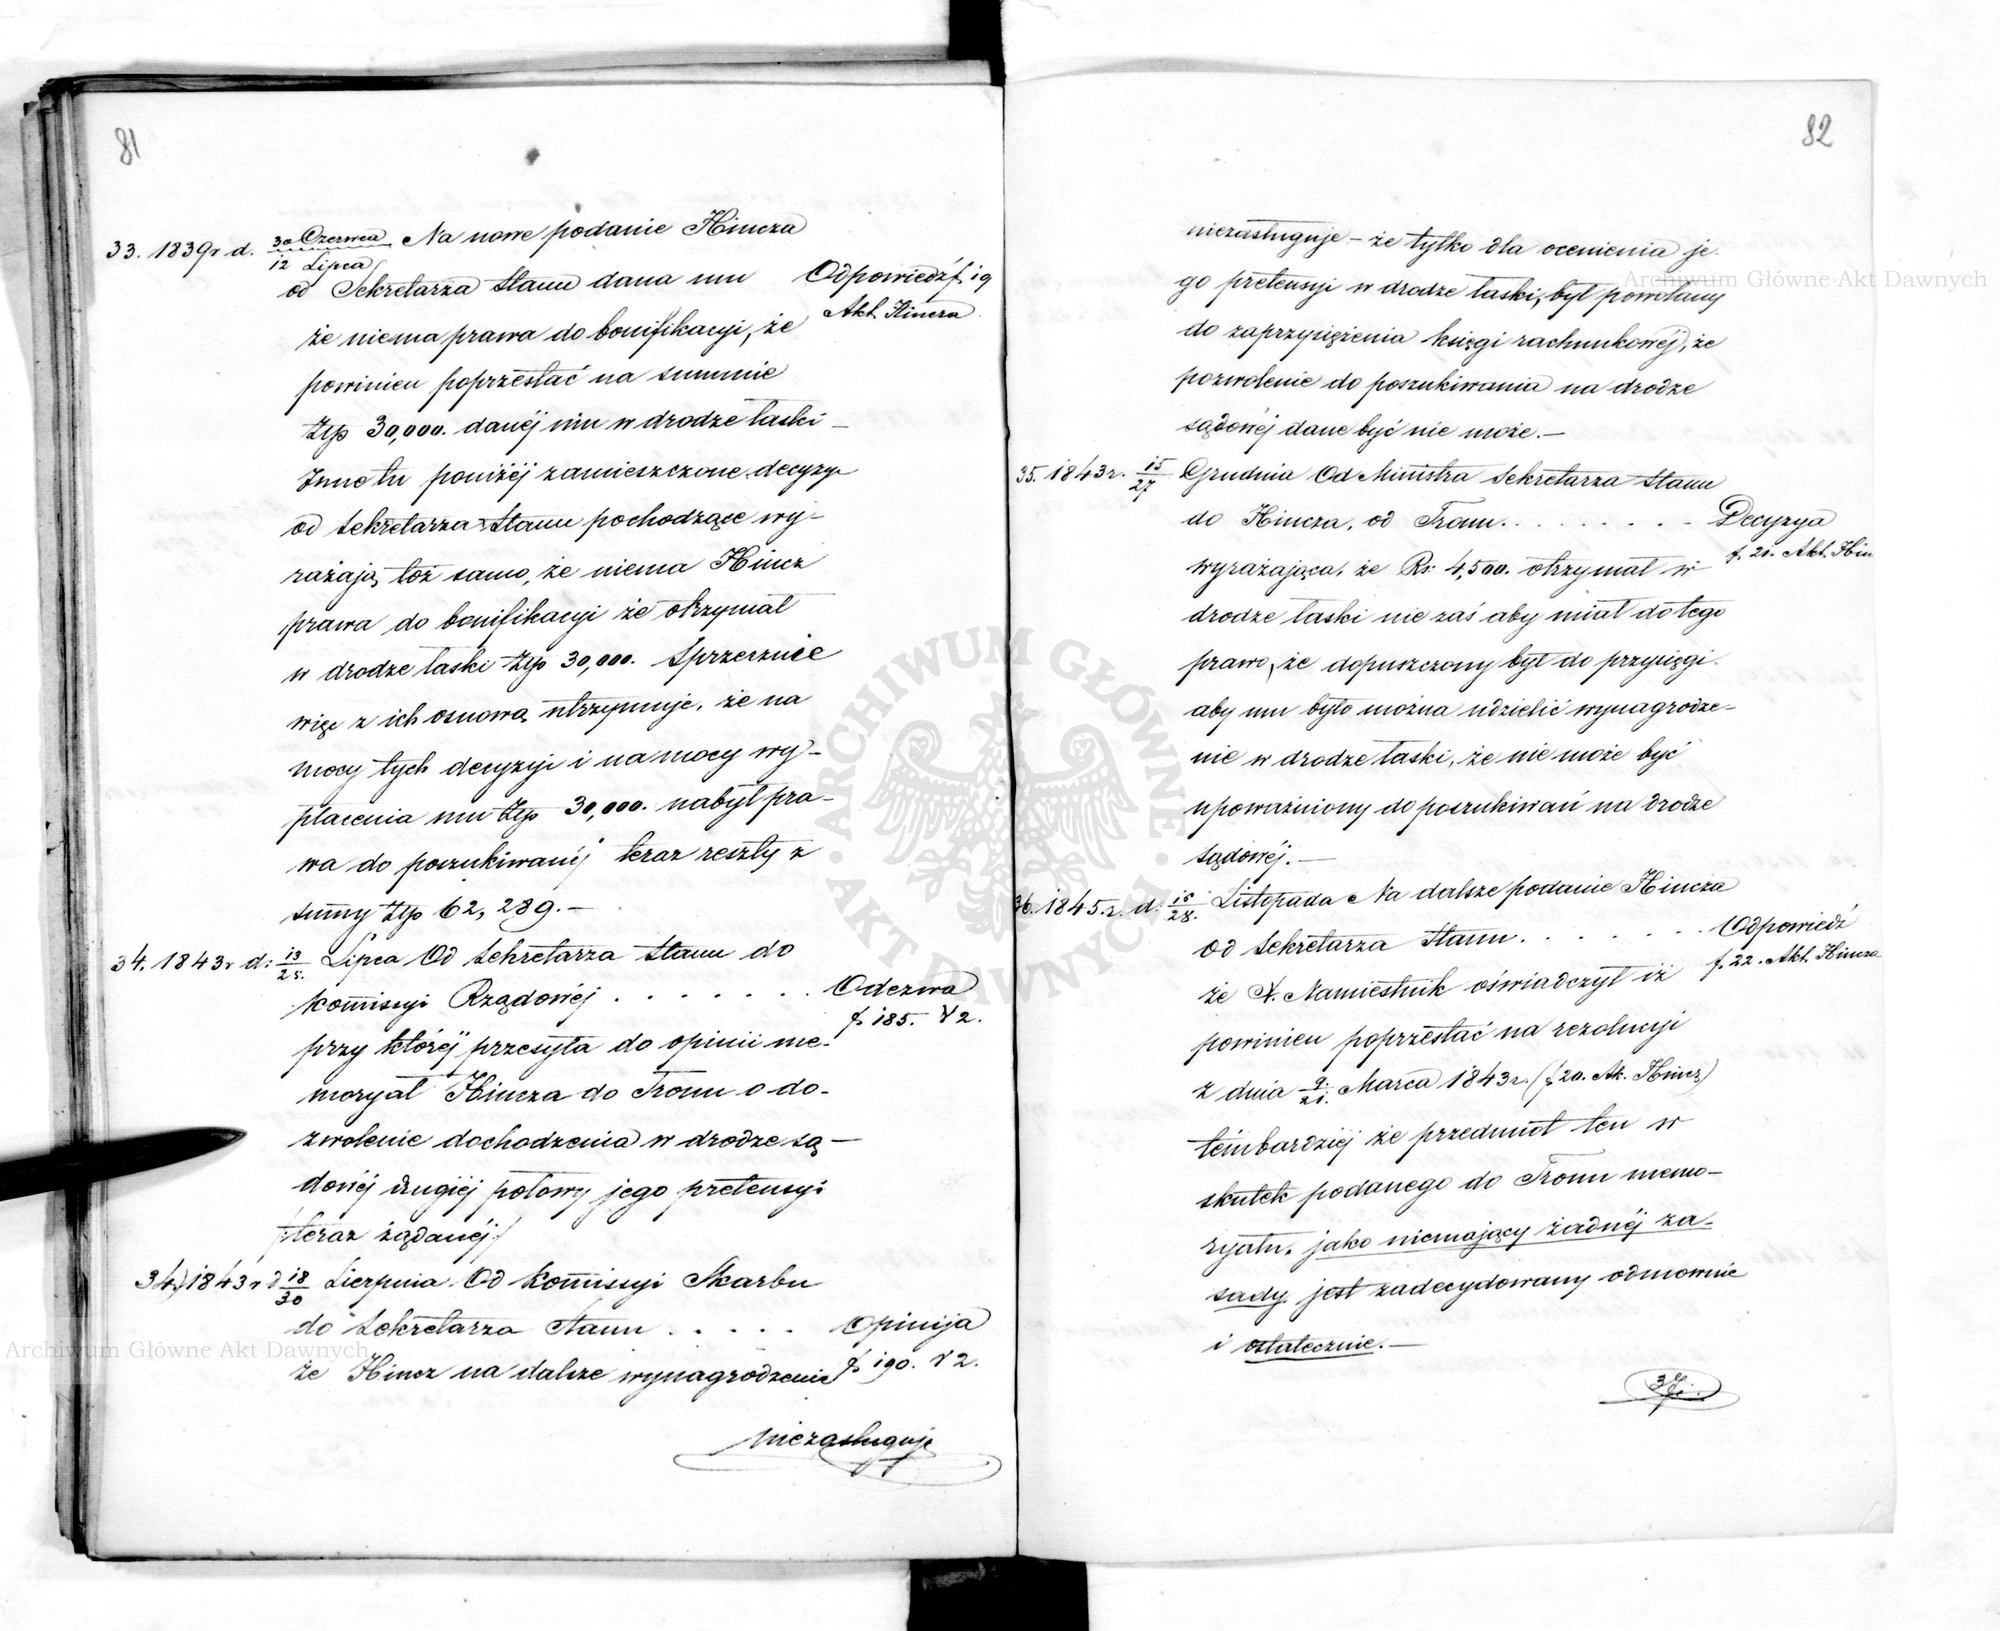 81
33. 1839r d. 30 Czerwca Na nowe podanie Hincza
12 Lipca
od Sekretarza Stanu dana mu Odpowiedź f. 19
Akt. Hincza
że niema prawa do bonifikacyi, że
powinien poprzestać na summie
Złp 30,000. danéj mu w drodze łaski –
Inne tu poniżéj zamieszczone decyzye
od Sekretarza Stanu pochodzące wy-
rażają toż samo, że niema Hincz
prawa do bonifikacyi że otrzymał
w drodze łaski Złp 30,000. Sprzecznie
więc z ich osnową utrzymuje, że na
mocy tych decyzyi i na mocy wy-
płacenia mu Złp 30,000. nabył pra-
wa do poszukiwanéj teraz reszty z
summy Złp 62,289. –
34. 1843r d: 13/25. Lipca Od Sekretarza Stanu do
Kommissyi Rządowéj . . . . . . . Odezwa
f 185. V 2.
przy któréj przesyła do opinii me-
moryał Hincza do Tronu o do-
zwolenie dochodzenia w drodze są-
dowéj drugiéj połowy jego pretensyi
/teraz żądanéj/
34) 1843r d 18/30 Sierpnia Od Kommissyi Skarbu
do Sekretarza Stanu . . . . . Opinija
f 190. V 2.
że Hincz na dalsze wynagrodzenie
niezasługuje
82
niezasługuje – że tylko dla ocenienia je-
go pretensyi w drodze łaski, był powołany
do zaprzysiężenia księgi rachunkowéj, że
pozwolenie do poszukiwania na drodze
sądowéj dane być nie może. –
35. 1843r. 15/27 Grudnia Od Ministra Sekretarza Stanu
do Hincza, od Tronu . . . . . . . . Decyzya
f. 21. Akt. Hin
wyrażająca, że Rs: 4,500. otrzymał w
drodze łaski nie zaś aby miał do tego
prawo, że dopuszczony był do przysięgi
aby mu było można udzielić wynagrodze-
nie w drodze łaski, że nie może być
upoważniony do poszukiwań na drodze
sądowéj. –
36. 1845.r. d: 16/28. Listopada Na dalsze podanie Hincza
od Sekretarza Stanu . . . . . . . Odpowiedź
f. 22. Akt. Hincza
że X. Namiestnik oświadczył iż
powinien poprzestać na rezolucyi
z dnia 9/21. Marca 1843r. (f 20. Ak. Hincz)
tembardziéj że przedmiot ten w
skutek podanego do Tronu memo-
ryału, jako niemający żadnéj za-
sady jest zadecydowany odmownie
i ostatecznie. –
37.
Archiwum Główne Akt Dawnych
Archiwum Główne Akt Dawnych
ARCHIWUM GŁÓWNE · AKT DAWNYCH ·